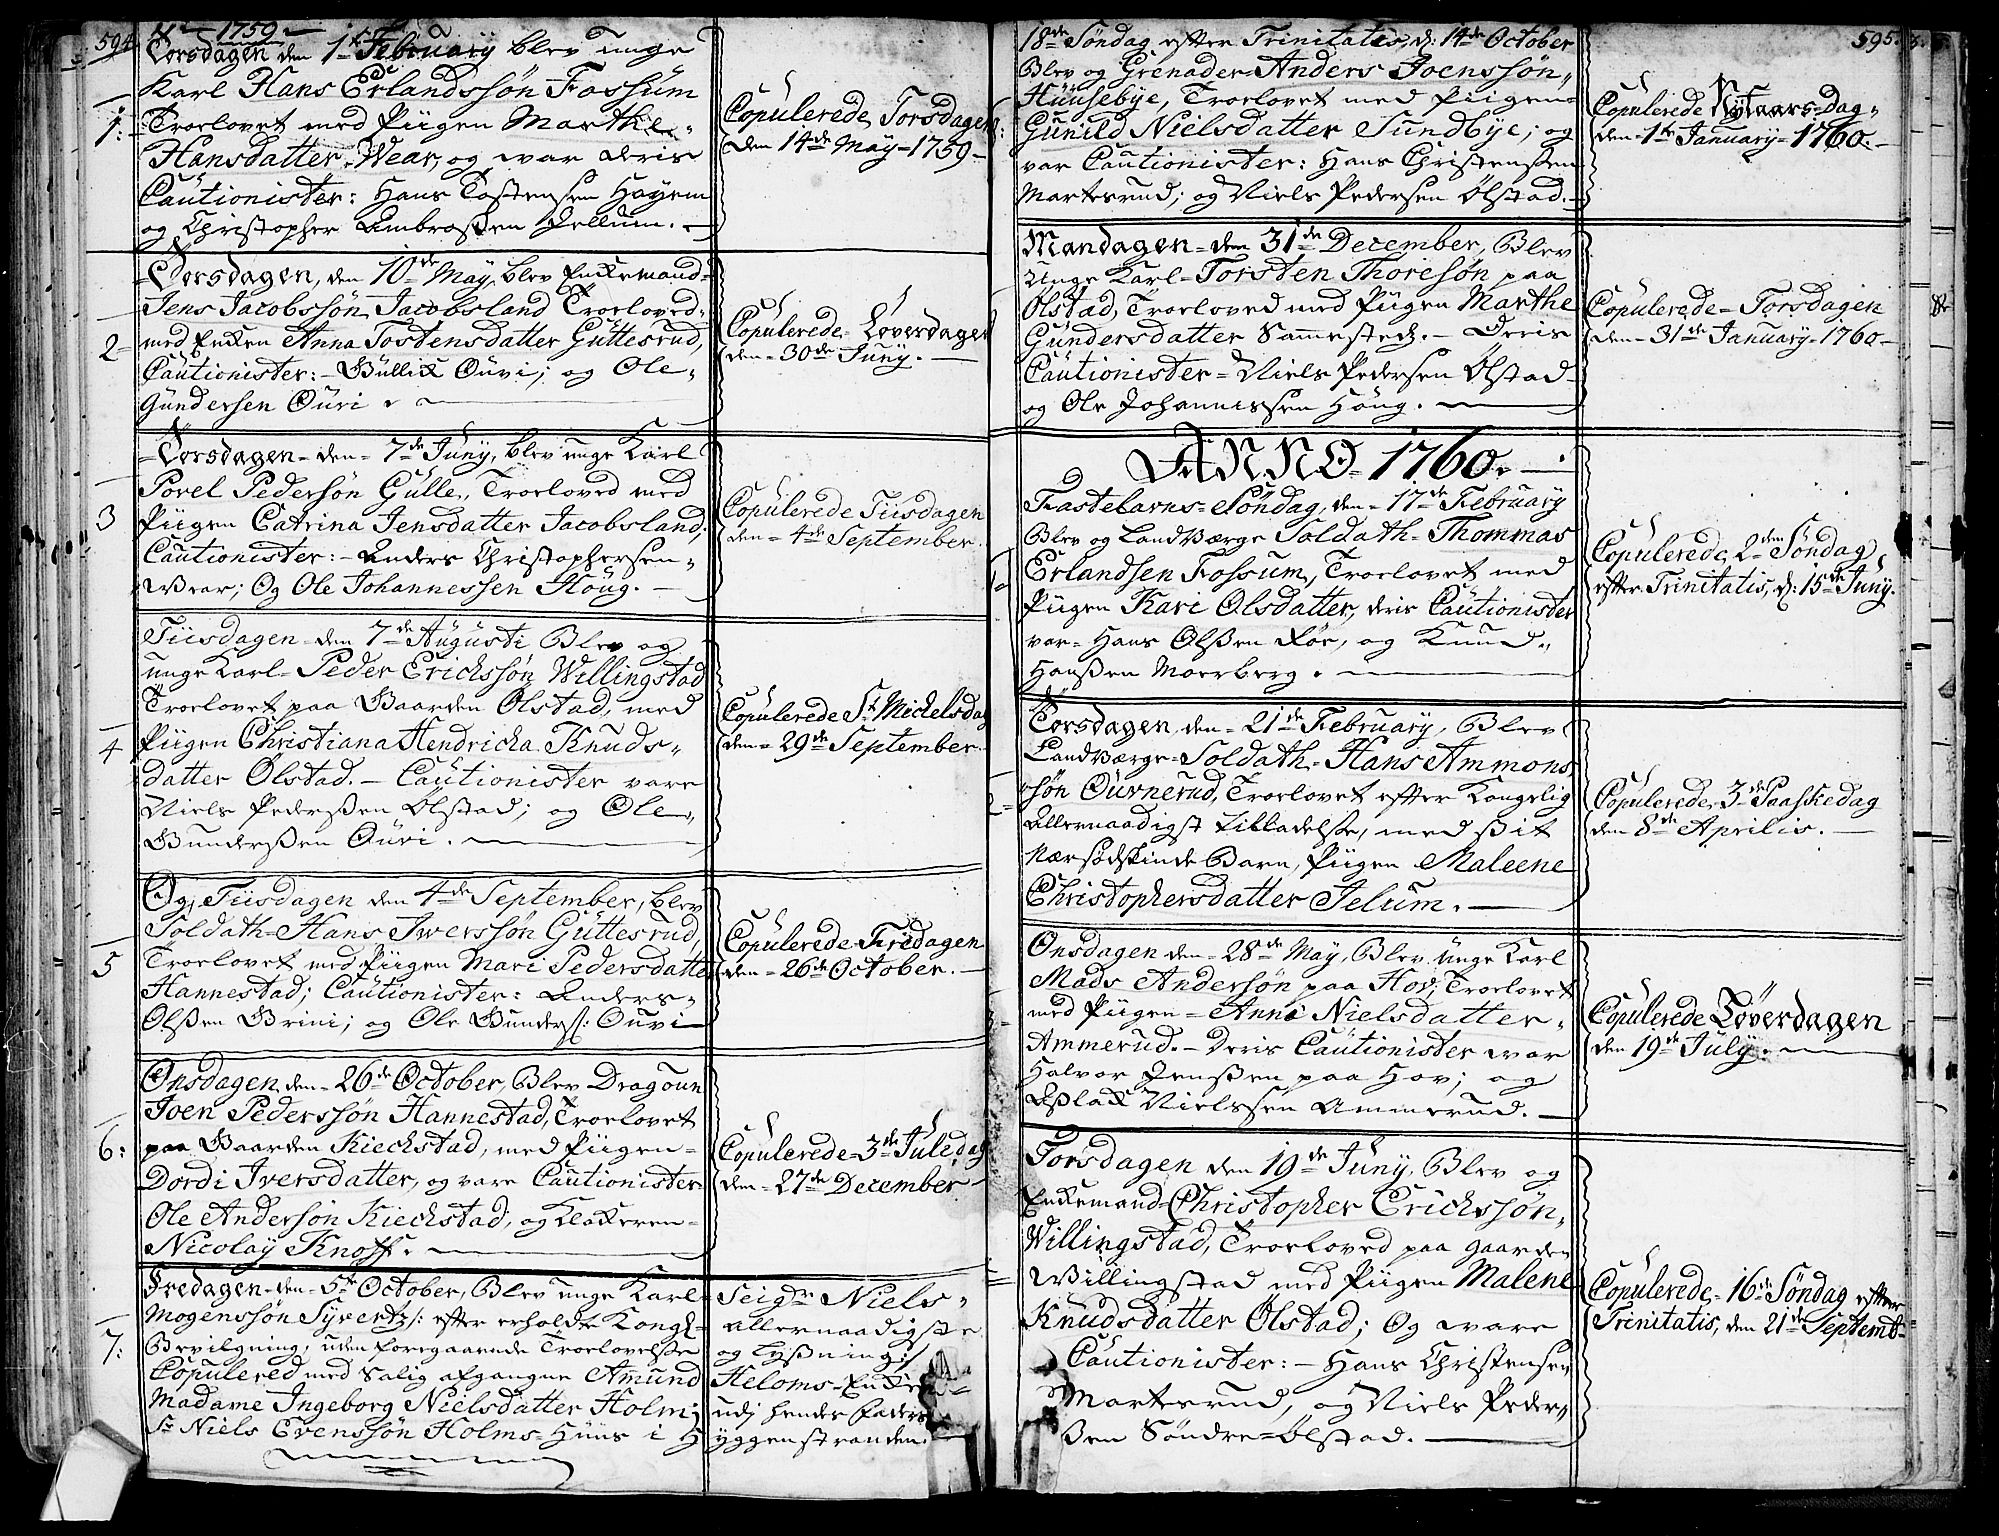 594.
Ao 1759
Torsdagen den 1ste February blev unge
Karl Hans Erlandssön Fossum
Troelovet med Piigen Marthe
1:
Hansdatter Wear, og war deris
Cautionister: Hans Tostensen Hayem
og Christopher Ambroßen Jellum.
Copulerede Torsdagen
den 14de May 1759
Torsdagen, den 10de May, blev Enkemand
Jens Jacobssön Jacobsland Troeloved
2
med Enken Anna Tostensdatter Güttesrud,
Cautionister: Büllik Öuvi; og Ole
Gündersen Öuri
Copulerede Löverdagen
den 30de Juny.
Torsdagen den 7de Juny, blev unge Karl
Povel Pedersön Gülle, Troeloved med
3
Piigen Catrina Jensdatter Jacobsland;
Cautionister: Anders Christophersen
Wear; Og Ole Johannessen Höug.
Copulerede Tiisdagen
den 4de September.
Tiisdagen den 7de Augusti Blev og
unge Karl Peder Erichssön Willingstad
Troelovet paa Gaarden Ölstad, med
4
Piigen Christiana Hendricha Knuds-
datter Ölstad. Cautionister vare
Niels Pederßen Ölstad; og Ole
Gunderßen Öuri.
Copulerede St Michelsdag
den 29de September.
Og, Tiisdagen den 4de September, blev
Soldath Hans Iverssön Güttesrud,
5
Troelovet med Piigen Mari Pedersdatter
Hannestad; Cautionister: Anders
Olßen Brini; og Ole Gunders: Ouvi
Copulerede Fredagen
den 26de October.
Onsdagen den 26de October, Blev Dragoun
Joen Pederssön Hannestad, Troelovet
6:
paa Gaarden Kiechstad, med Piigen
Dordi Iversdatter, og vare Cautionister
Ole Andersön Kiechstad, og Klokeren
Nicolaÿ Knoff.
Copulerede 3de Juledag
den 27de December
Fredagen den 5te October, Blev unge Karl Seigr Niels
Mogenssön Syvertz: efter erholdte Kongl: allernaadigste
7:
Bevilgning, uden foregaaende Troelovelße og Lysning:
Copulered med Salig afgangne Amund Heloms Enke
Madame Ingeborg Nielsdatter Holm; udj hendes Faders
Sr Niels Evenssön Holms Huus i Hyggenstranden.
595.
18de Söndag efter Trinitatis, d: 14de October
Blev og Grenader Anders Joenssön
Huusebye, Troelovet med Piigen
Gunild Nielsdatter Sundbye; og
var Cautionister: Hans Christensen
Martesrud; og Niels Pedersen Ölstad.
Copulerede Nytaars-Dag
den 1te January 1760.
Mandagen den 31de December, Blev
Unge Karl Torsten Thoresön paa
Ölstad, Troeloved med Piigen Marthe
Gündersdatter Sammested. Deris
Cautionister Niels Pedersen Ölstad
og Ole Johannessen Höug.
Copulerede Torsdagen
den 31de January 1760
ANNO 1760.
Fastelavns Söndag, den 17de February
Blev og Landværge Soldath Thommas
Erlandsen Fossum, Troelovet med
1
Piigen Kari Olsdatter, deris Cautionister
var Hans Olßen Röe, og Knud
Hanßen Moerberg.
Copulerede 2den Söndag
efter Trinitatis, d: 15de Juny.
Torsdagen den 21de February, Blev
Landværge Soldath Hans Ammons
2
sön Öurnerud, Troelovet efter Kongelig
Allernaadigst Tilladelße, med sit
Nærsödskinde Barn, Piigen Maleene
Christophersdatter Jelum.
Copulerede 3de Paaskedag
den 8de Aprilis.
Onsdagen den 28de May, Blev unge Karl
Mads Andersön paa Hov, Troelovet
med Piigen Anne Nielsdatter
Ammerud. Deris Cautionister war
Halvor Jenßen paa Hov; og
Aslak Nielssen Ammerud.
Copulerede Löverdagen
den 19de July.
Torsdagen den 19de Juny, Blev og
Enkemand Christopher Erichssön
Willingstad, Troeloved paa Gaarden
Willingstad med Piigen Malene
Knudsdatter Ölstad; Og ware
Cautionister: Hans Christensen
Martesrud, og Niels Peder-
ßen Söndre Ölstad.
Copulerede 16de Söndag efter
Trinitatis, den 21de Septemb